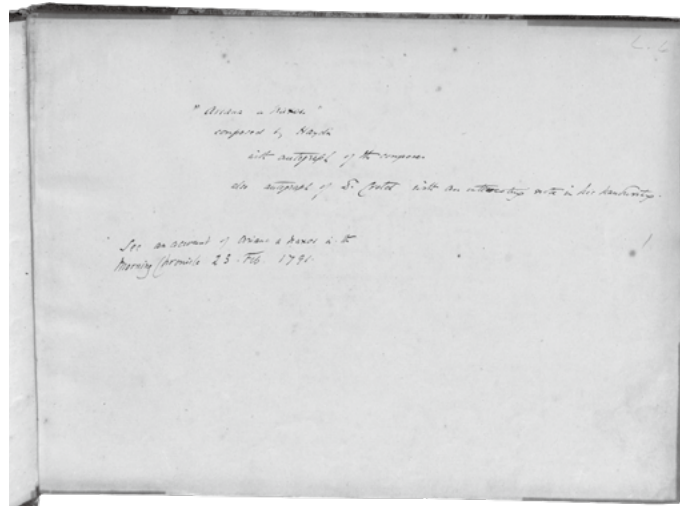 " Ariana a Naxos "
composed by Haydn
with autograph of the composer
also autograph of Dr. with an interesting note in his handwriting.
See an account of Ariana a Naxos in the
Morning Chronicle 23. Feb. 1791.